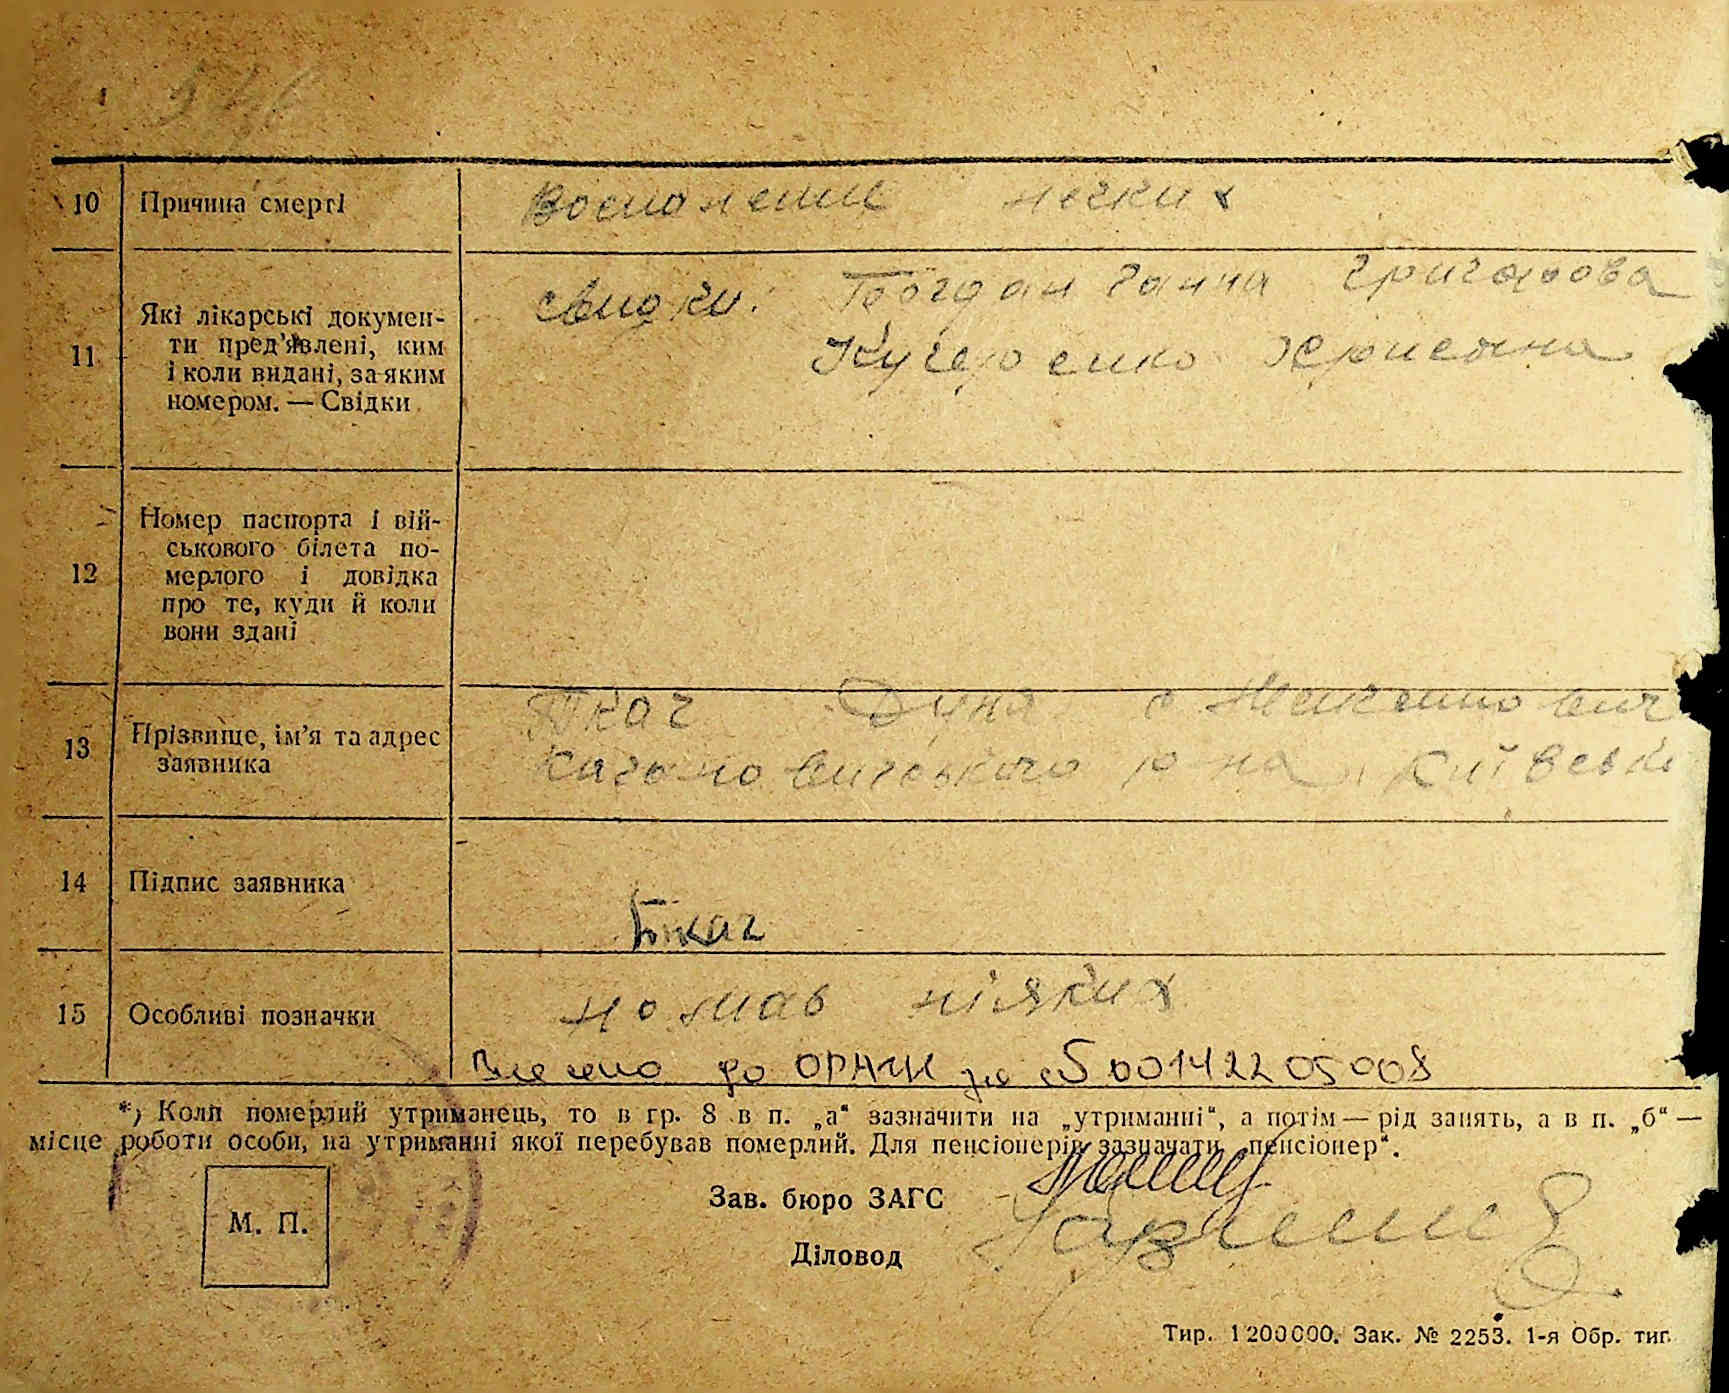 10 Причина смерті Воспалении легких
11 Які лікарські докумен-
ти пред'явлені, ким
і коли видані, за яким
номером. — Свідки
свидки: Богдан Ганна Григорова
Кучеренко Христина
12 Номер паспорта і вій-
ськового білета по-
мерлого і довідка
про те, куди й коли
вони здані
13 Прізвище, ім'я та адрес
заявника
Ткач Дуня с
Кагановичського р-на Київськ
14 Підпис заявника Ткач
15 Особливі позначки не мав ніяких
Внесено до ОРАЦС за 00142205008
*) Коли померлий утриманець, то в гр. 8 в п. „а“ зазначити на „утриманні“, а потім — рід занять, а в п. „б“ —
місце роботи особи, на утриманні якої перебував померлий. Для пенсіонерів зазначати „пенсіонер“.
М. П.
Зав. бюро ЗАГС
Діловод
Тир. 1200000. Зак. № 2253. 1-я Обр. тип.